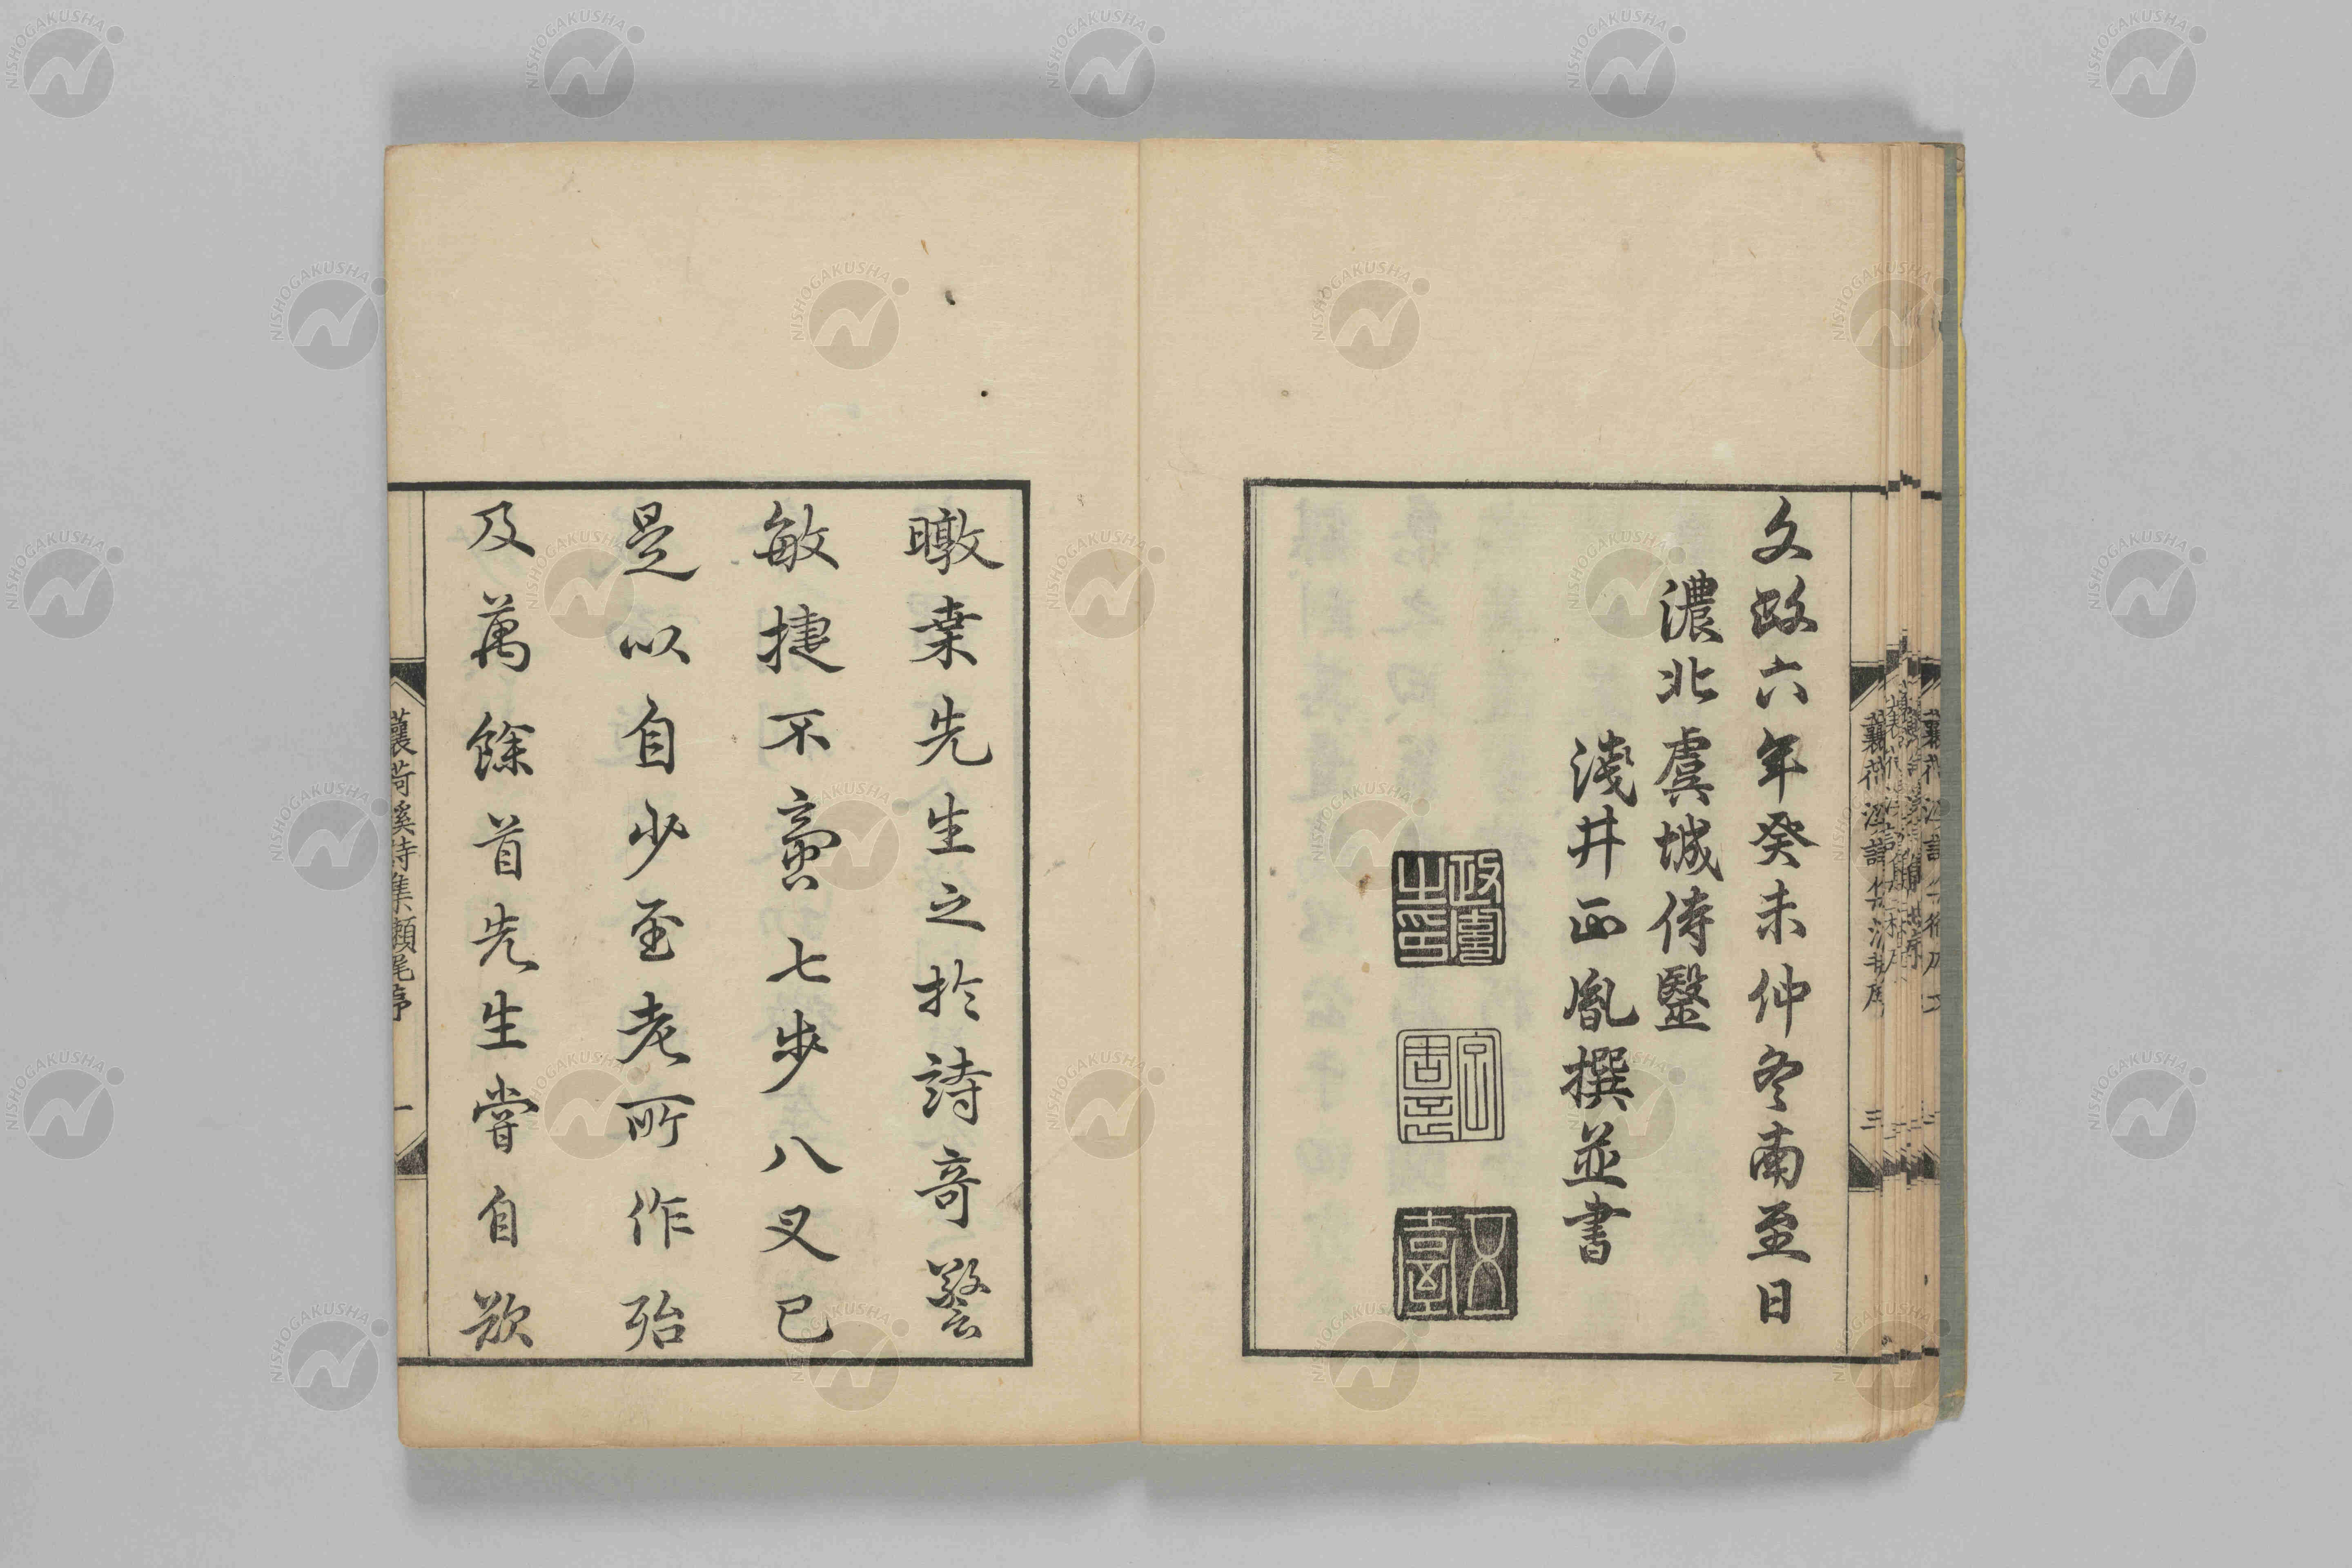 文政六年癸未仲冬南至日
濃北虞城侍醫
淺井正胤撰並書
暾桒先生之於詩奇警
敏捷不啻七步八叉已
是以自少至老所作殆
及萬餘首先生嘗自欿
蘘荷溪詩集瀬尾序
一
三
NISHOGAKUSHA